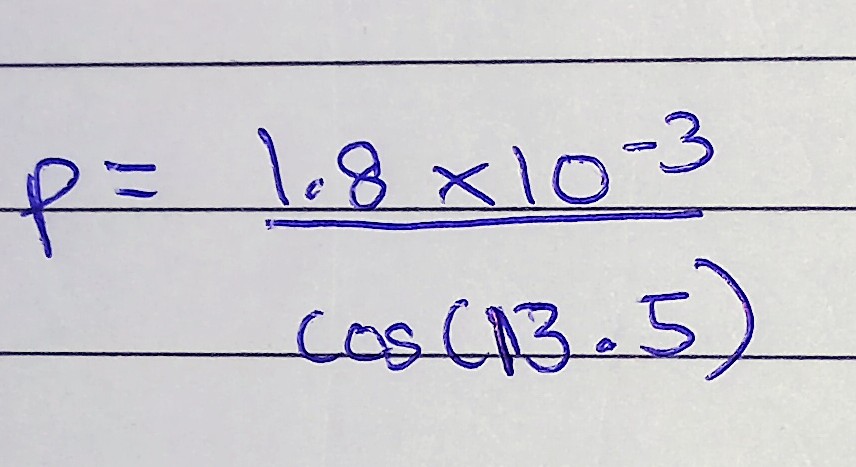 p = 1.8 × 10⁻³
cos(13.5)